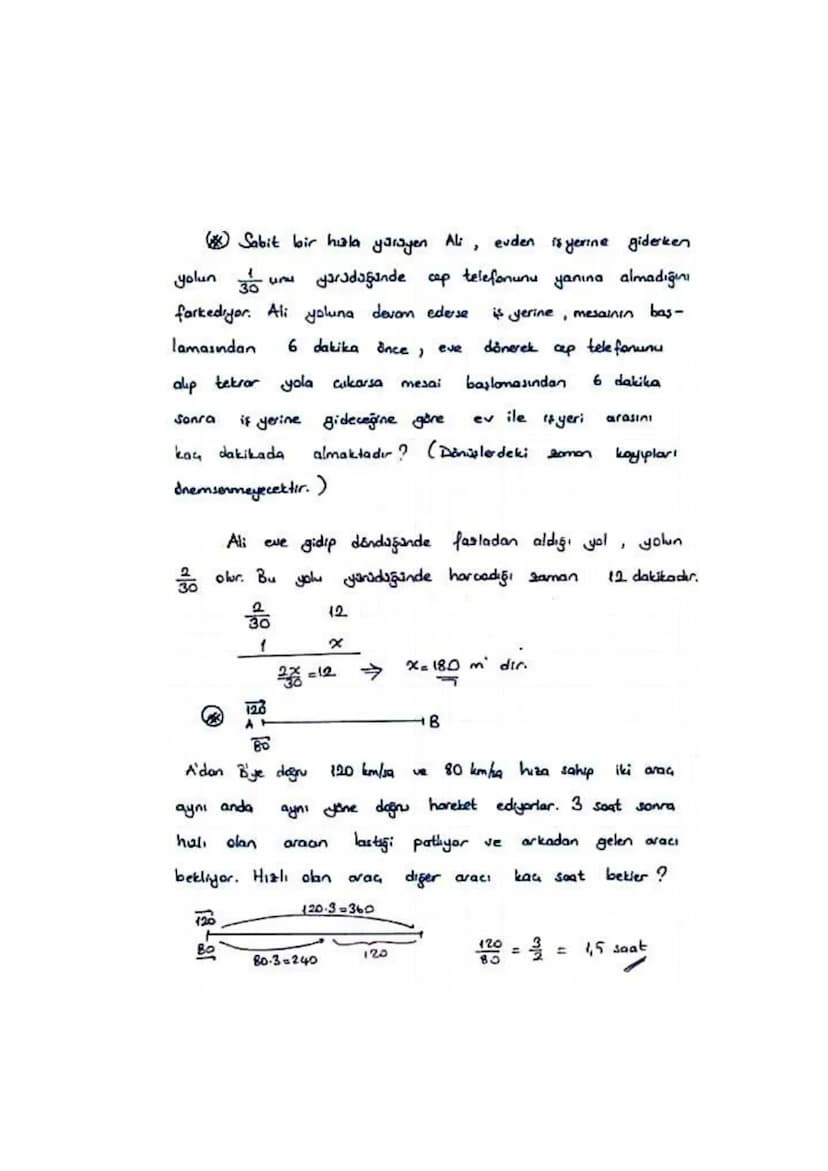 (*) Sabit bir hızla yürüyen Ali, evden iş yerine giderken
yolun 1/30 unu yürüdüğünde cep telefonunu yanına almadığını
farkediyor. Ali yoluna devam ederse iş yerine, mesainin baş-
lamasından 6 dakika önce, eve dönerek cep telefonunu
alıp tekrar yola çıkarsa mesai başlamasından 6 dakika
sonra iş yerine gideceğine göre ev ile işyeri arasını
kaç dakikada almaktadır? (Dönüşlerdeki zaman kayıpları
önemsenmeyecektir.)
Ali eve gidip döndüğünde fazladan aldığı yol, yolun
2/30 olur. Bu yolu yürüdüğünde harcadığı zaman 12 dakikadır.
2/30 12
1 x
2x/30 = 12 ⇒ x = 180 m' dir.
(*) 120
A B
80
A'dan B'ye doğru 120 km/sa ve 80 km/sa hıza sahip iki araç
aynı anda aynı yöne doğru hareket ediyorlar. 3 saat sonra
hızlı olan aracın lastiği patlıyor ve arkadan gelen aracı
bekliyor. Hızlı olan araç diğer aracı kaç saat bekler?
120 120·3=360
80 80·3=240 120 120/80 = 3/2 = 1,5 saat